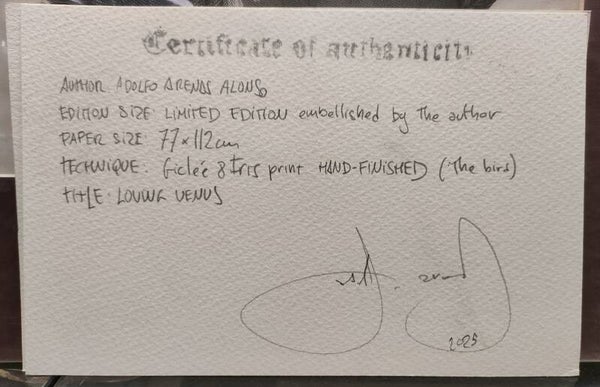 Certificate of authenticity
AUTHOR: ADOLFO ARENAS ALONSO
EDITION SIZE: LIMITED EDITION embellished by The author
PAPER SIZE: 77x112cm
TECHNIQUE: Giclée & Iris print HAND-FINISHED (The birs)
TITLE: LOUWK VENUS
2025